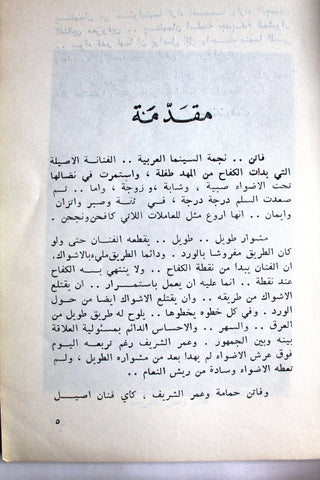 مقدّمة
فاتن .. نجمة السينما العربية .. الفنانة الاصيلة
التي بدات الكفاح من المهد طفلة ، واستمرت في نضالها
تحت الاضواء صبية ، وشابة ،و زوجة ، واما .. ثم
صعدت السلم درجة درجة ، في ثقة وصبر واتزان
وايمان .. انها اروع مثل للعاملات اللائي كافحن ونجحن .
مشوار طويل .. طويل .. يقطعه الفنان حتى ولو
كان الطريق مفروشا بالورد . ودائما الطريق مليء بالاشواك.
ان الفنان يبدا من نقطة الكفاح .. ولا ينتهي به الكفاح
عند نقطة .. انما عليه ان يعمل باستمرار .. ان يقتلع
الاشواك من طريقه .. وان يقتلع الاشواك ايضا من حول
الورد . وفي كل خطوه يخطوها .. يلوح له طريق طويل من
العرق .. والسهر .. والاحساس الدائم بمسئولية العلاقة
بينه وبين الجمهور . وعمر الشريف رغم تربعه اليوم
فوق عرش الاضواء لم يهدا بعد من مشواره الطويل ، ولم
تعطه الاضواء وسادة من ريش النعام ..
وفاتن حمامة وعمر الشريف ، كاي فنان اصيل
٥